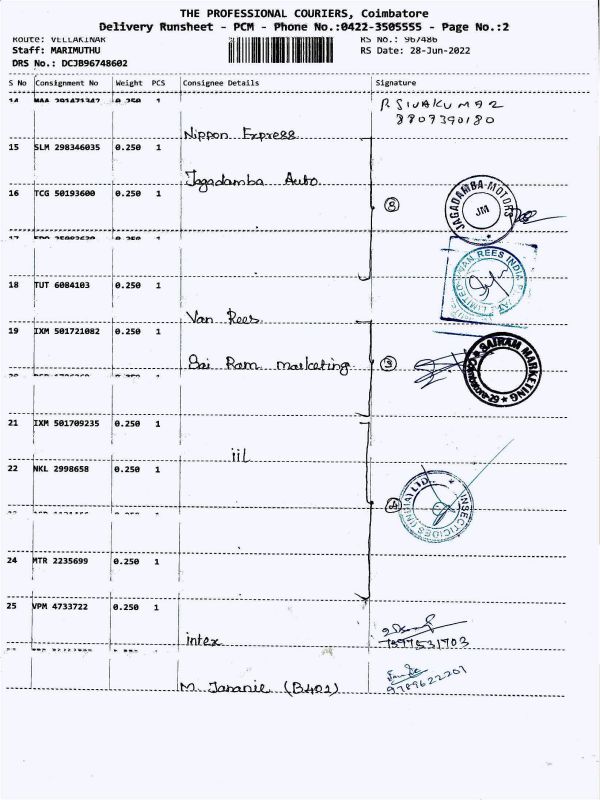 THE PROFESSIONAL COURIERS, Coimbatore
Delivery Runsheet - PCM - Phone No.:0422-3505555 - Page No.:2
Route: VELLAKINAR
RS No.: 967486
Staff: MARIMUTHU
RS Date: 28-Jun-2022
DRS No.: DCJB96748602
S No Consignment No Weight PCS Consignee Details Signature
14 MAA 291471342 0.250 1
R. SIVAKUMAR
8807390180
Nippon Express
15 SLM 298346035 0.250 1
Jagadamba Auto
16 TCG 50193600 0.250 1
JAGADAMBA-MOTORS
JM
17
0.250 1
18 TUT 6084103 0.250 1
VAN REES INDIA
Van Rees
19 IXM 501721082 0.250 1
Sai Ram marketing
SAIRAM MARKETING
21 IXM 501709235 0.250 1
iil
22 NKL 2998658 0.250 1
INSECTICIDES (INDIA) LTD.
24 MTR 2235699 0.250 1
25 VPM 4733722 0.250 1
intex
7397531703
M. Jananie (B402)
9789622201